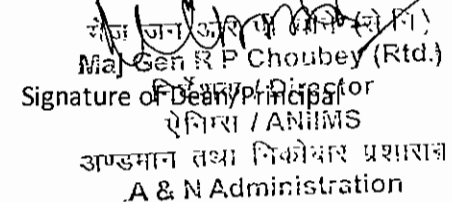 मेज जन आर पी चौबे (से नि)
Maj Gen R P Choubey (Rtd.)
निदेशक / Director
Signature of Dean/Principal
ऐनिम्स / ANIIMS
अण्डमान तथा निकोबार प्रशासन
A & N Administration